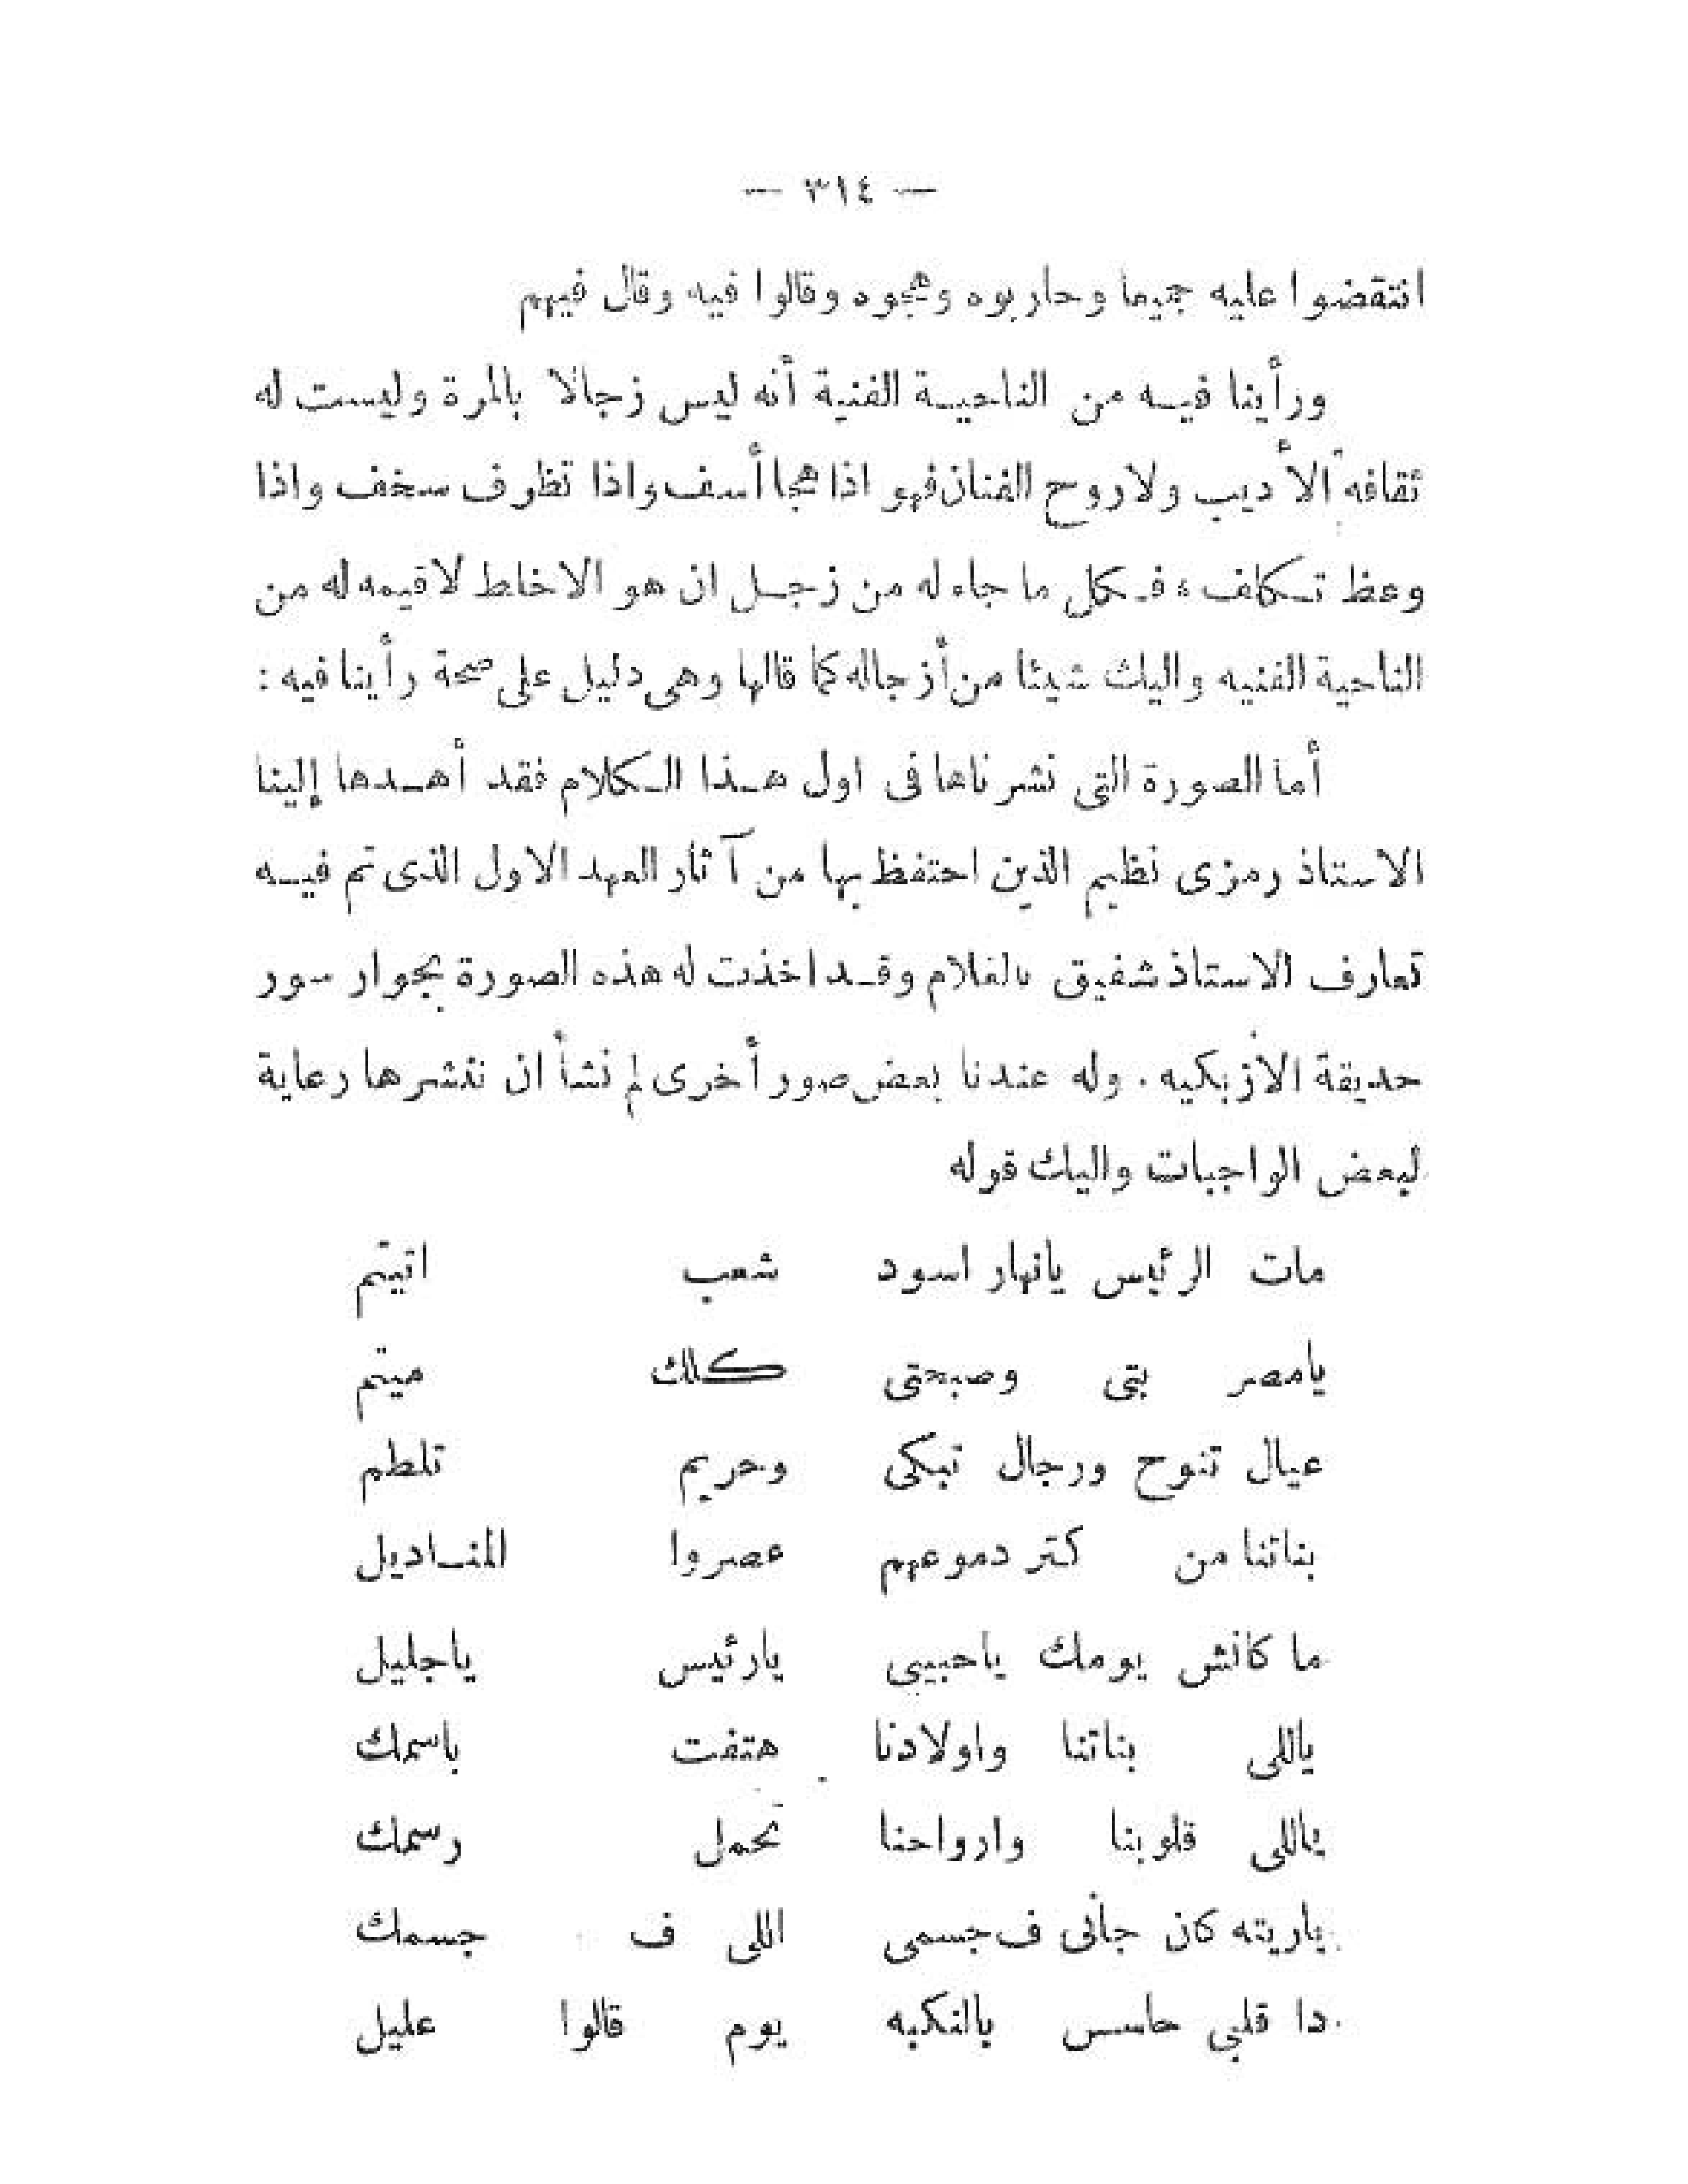 — ٣١٤ —
انتقضوا عليه جميعا وحاربوه وهجوه وقالوا فيه وقال فيهم
ورأينا فيه من الناحية الفنية أنه ليس زجالا بالمرة وليست له
ثقافه الأديب ولا روح الفنان فهو اذا هجا أسف واذا تظرف سخف واذا
وعظ تكلف ؛ فكل ما جاء له من زجل ان هو الا خلط لا قيمه له من
الناحية الفنيه واليك شيئا من أزجاله كما قالها وهى دليل على صحة رأينا فيه :
أما الصورة التى نشرناها فى اول هذا الكلام فقد أهدها إلينا
الاستاذ رمزى نظيم الذين احتفظ بها من آثار العهد الاول الذى تم فيه
تعارف الاستاذ شفيق بالغلام وقد اخذت له هذه الصورة بجوار سور
حديقة الأزبكيه . وله عندنا بعض صور أخرى لم نشأ ان ننشرها رعاية
لبعض الواجبات واليك قوله
مات الرئيس يانهار اسود شعب اتيتم
يامصر بتى وصبحتى كلك ميتم
عيال تنوح ورجال تبكى وحريم تلطم
بناتنا من كتر دموعهم عصروا المناديل
ما كانش يومك ياحبيبى يارئيس ياجليل
ياللى بناتنا واولادنا هتفت باسمك
ياللى قلوبنا وارواحنا تحمل رسمك
ياريته كان جانى ف جسمى اللى ف جسمك
دا قلبى حاسس بالنكبه يوم قالوا عليل